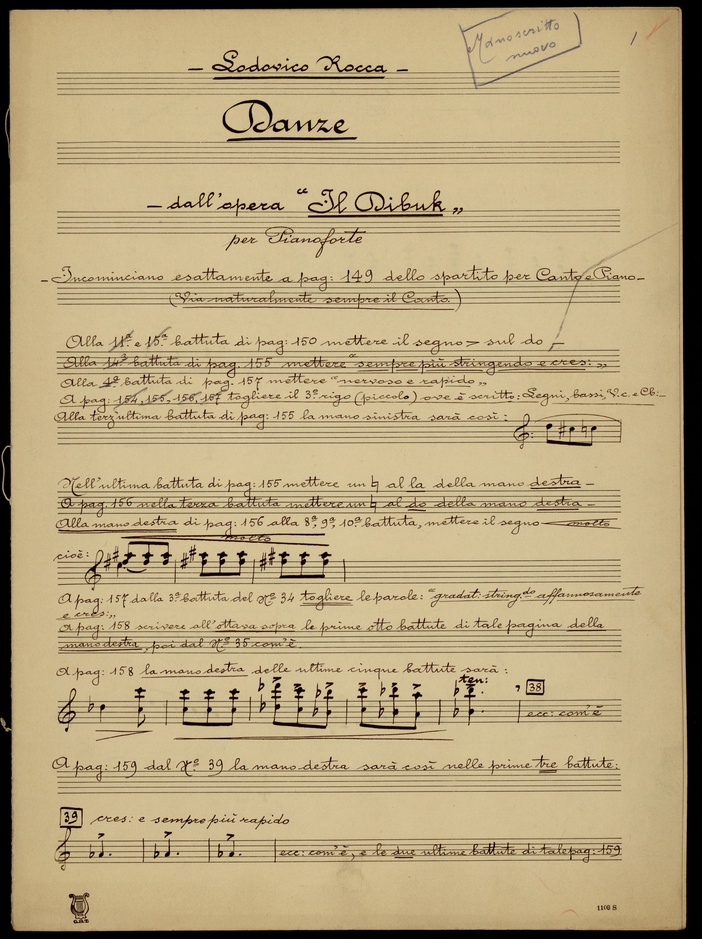 Manoscritto
nuovo
1
— Lodovico Rocca —
Danze
— dall'opera "Il Dibuk„
per Pianoforte
— Incominciano esattamente a pag: 149 dello spartito per Canto e Piano —
(Via naturalmente sempre il Canto.)
Alla 11ª e 15ª battuta di pag: 150 mettere il segno > sul do
Alla 14ª battuta di pag. 155 mettere "sempre più stringendo e cres:„
Alla 4ª battuta di pag. 157 mettere "nervoso e rapido„
A pag: 154, 155, 156, 157 togliere il 3º rigo (piccolo) ove è scritto: Legni, bassi, V.c. e Cb: —
Alla terz'ultima battuta di pag: 155 la mano sinistra sarà così:
Nell'ultima battuta di pag: 155 mettere un ♮ al la della mano destra —
A pag. 156 nella terza battuta mettere un ♮ al do della mano destra —
Alla mano destra di pag: 156 alla 8ª, 9ª, 10ª battuta, mettere il segno < molto
molto
cioè:
A pag: 157 dalla 3ª battuta del Nº 34 togliere le parole: "gradat: string.do affannosamente
e cres:„
A pag: 158 scrivere all'ottava sopra le prime otto battute di tale pagina della
mano destra, poi dal Nº 35 com'è.
A pag: 158 la mano destra delle ultime cinque battute sarà:
ten:
38
ecc: com'è
A pag: 159 dal Nº 39 la mano destra sarà così nelle prime tre battute:
39 cres: e sempre più rapido
ecc: com'è, e le due ultime battute di tale pag: 159
1106 S